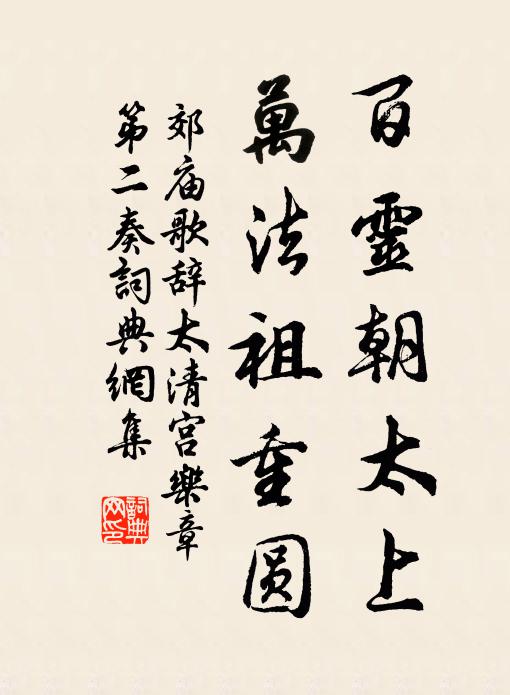 百靈朝太上
萬法祖重圆
郊庙歌辞太清宫樂章
第二奏詞典網集
詞典
网印